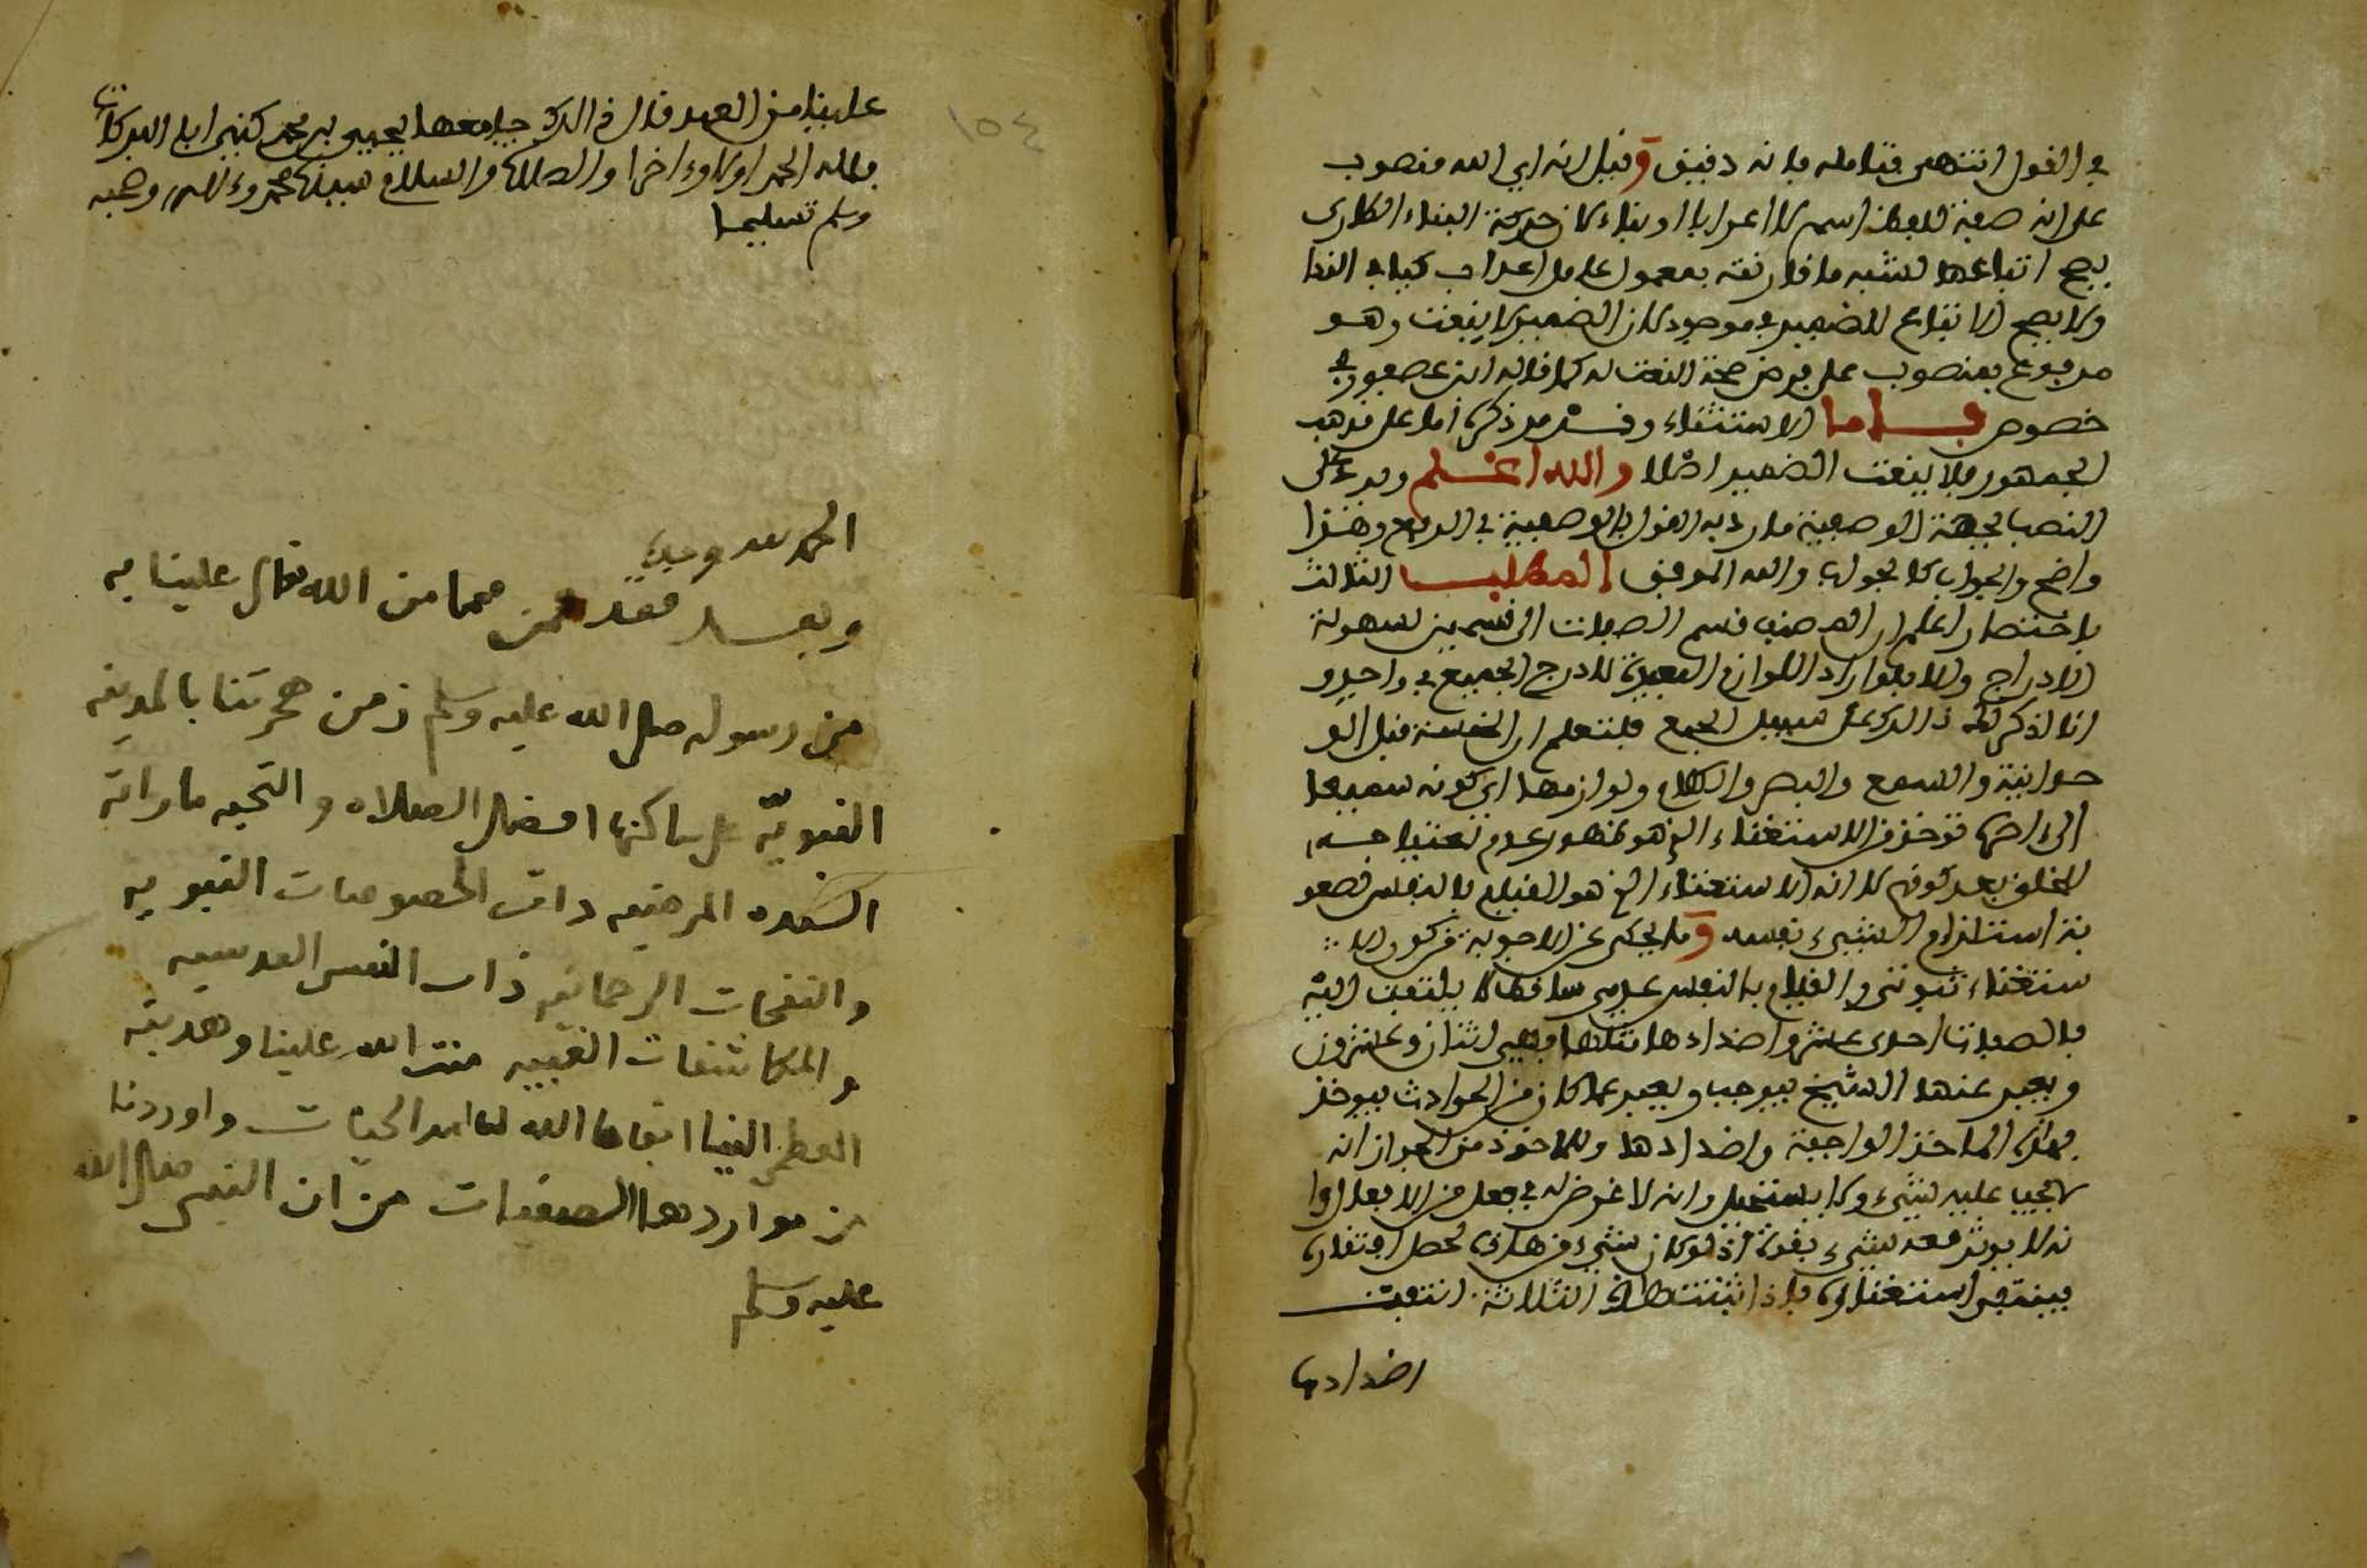 في القول انتهى فتامله فانه دقيق وقيل انه اي الله منصوب
على انه صفة للفظ اسم لا اعرابا او بناء لان حركة البناء الطارئ
يصح اتباعها لشبه ما قارنته بمعمول عامل اعراب كما في الندا
ولا يصح الاتباع للضمير في موجود لان الضمير لا ينعت وهو
مرفوع بمنصوب على فرض صحة النعت له كما قاله ابن عصفور في
خصوص قاما الاستثناء وقد مر ذكره اما على مذهب
الجمهور فلا ينعت الضمير اصلا والله اعلم ويرد على
النصب بجهة الوصفية ما رد به القول بالوصفية في الرفع وهذا
واضح والجواب كالجواب والله الموفق المطلب الثالث
باختصار اعلم ان المصنف قسم الصفات الى قسمين لسهولة
الادراج والا فلو اراد اللوازم البعيدة لادرج الجميع في واحد و
انا اذكر لك ذالك على سبيل الجمع فلتعلم ان الخمسة قبل الو
حدانية والسمع والبصر والكلام ولوازمها اي كونه سميعا
الى اخرها توخذ من الاستغناء الذي هو عدم احتياجه
للخلق بعد كونه لا انه الاستغناء الذي هو القيام بالنفس لصعو
بة استلزام الشيء نفسه وما يحكى من الاجوبة من كون الا
ستغناء ثبوتي والقيام بالنفس عدمي ساقط لا يلتفت اليه
فالصفات احدى عشر واضدادها مثلها فهي اثنان وعشرون
ويعبر عنها الشيخ بيوجب ويعبر عما كان من الحوادث بيوخذ
فهذه الماخذ الواجبة واضدادها والماخوذ من الجواز انه
لا يجب عليه شيء ولا يستحيل وانه لا غرض له في فعل من الافعال وا
نه لا يوثر معه شيء بقوة اذ لو كان شيء من هذه لحصل افتقاره
فينتفي استغناؤه فاذا ثبتت هذه الثلاثة انتفت
اضدادها
١٥٤
علينا من العهد قال في الدرك جامعها يحيى بن محمد كنيتي ابا البركات
فلله الحمد اولا واخرا والصلاة والسلام سيدنا محمد وءاله وصحبه
وسلم تسليما
الحمد لله وحده
وبعد فقد فمن مما من الله تعالى علينا به
من رسوله صلى الله عليه وسلم زمن هجرتنا بالمدينه
النبويّه على ساكنها افضل الصلاه والتحيه ما رواته
السيده المرضيه ذات الخصوصات النبويه
والنفحات الرحمانيه ذات النفس القدسيه
والمكاشفات الغيبيه منت الله علينا وهديته
العظمى الينا ابقاها الله لنا امد الحيات واوردنا
من مواردها الصفيات من ان النبي صلى الله
عليه وسلم